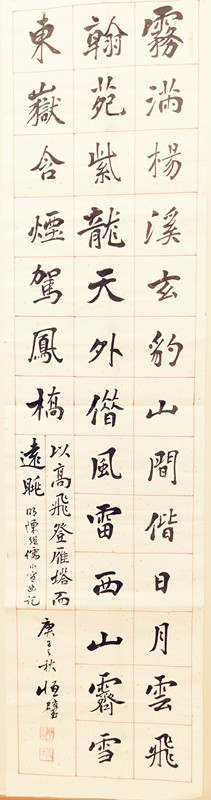 霧滿楊溪玄豹山間偕日月雲飛
翰苑紫龍天外偕風雷西山霽雪
東嶽含煙駕鳳橋
以高飛登雁塔而
遠眺
明陳繼儒小窗幽記
庚子秋 恒璧